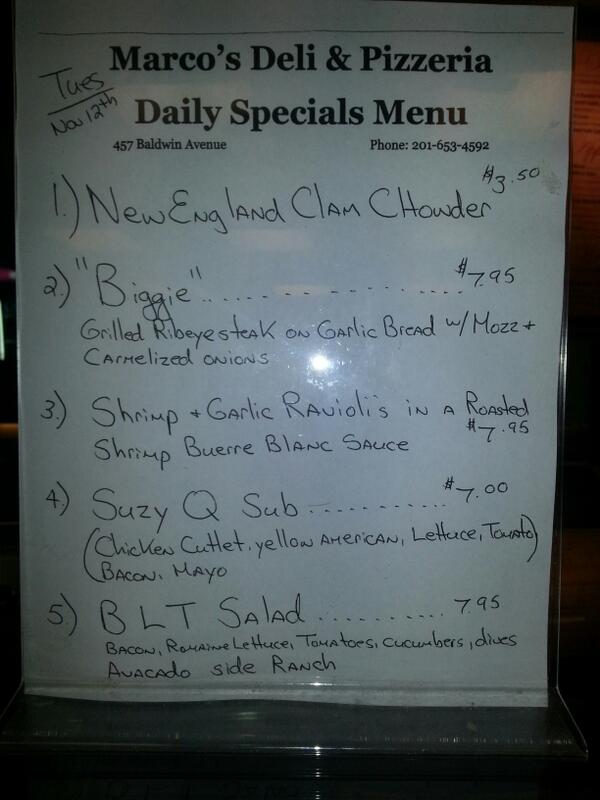 Marco's Deli & Pizzeria
Tues
Nov 12th
Daily Specials Menu
457 Baldwin Avenue Phone: 201-653-4592
1.) New England Clam Chowder $3.50
2.) "Biggie" ............ $7.95
Grilled Ribeye steak on Garlic Bread w/ Mozz +
Carmelized onions
3.) Shrimp + Garlic Ravioli's in a Roasted
Shrimp Buerre Blanc Sauce $7.95
4.) Suzy Q Sub ........... $7.00
(Chicken Cutlet, yellow American, Lettuce, Tomato)
Bacon, Mayo
5.) BLT Salad .......... 7.95
Bacon, Romaine Lettuce, Tomatoes, cucumbers, olives
Avacado side Ranch